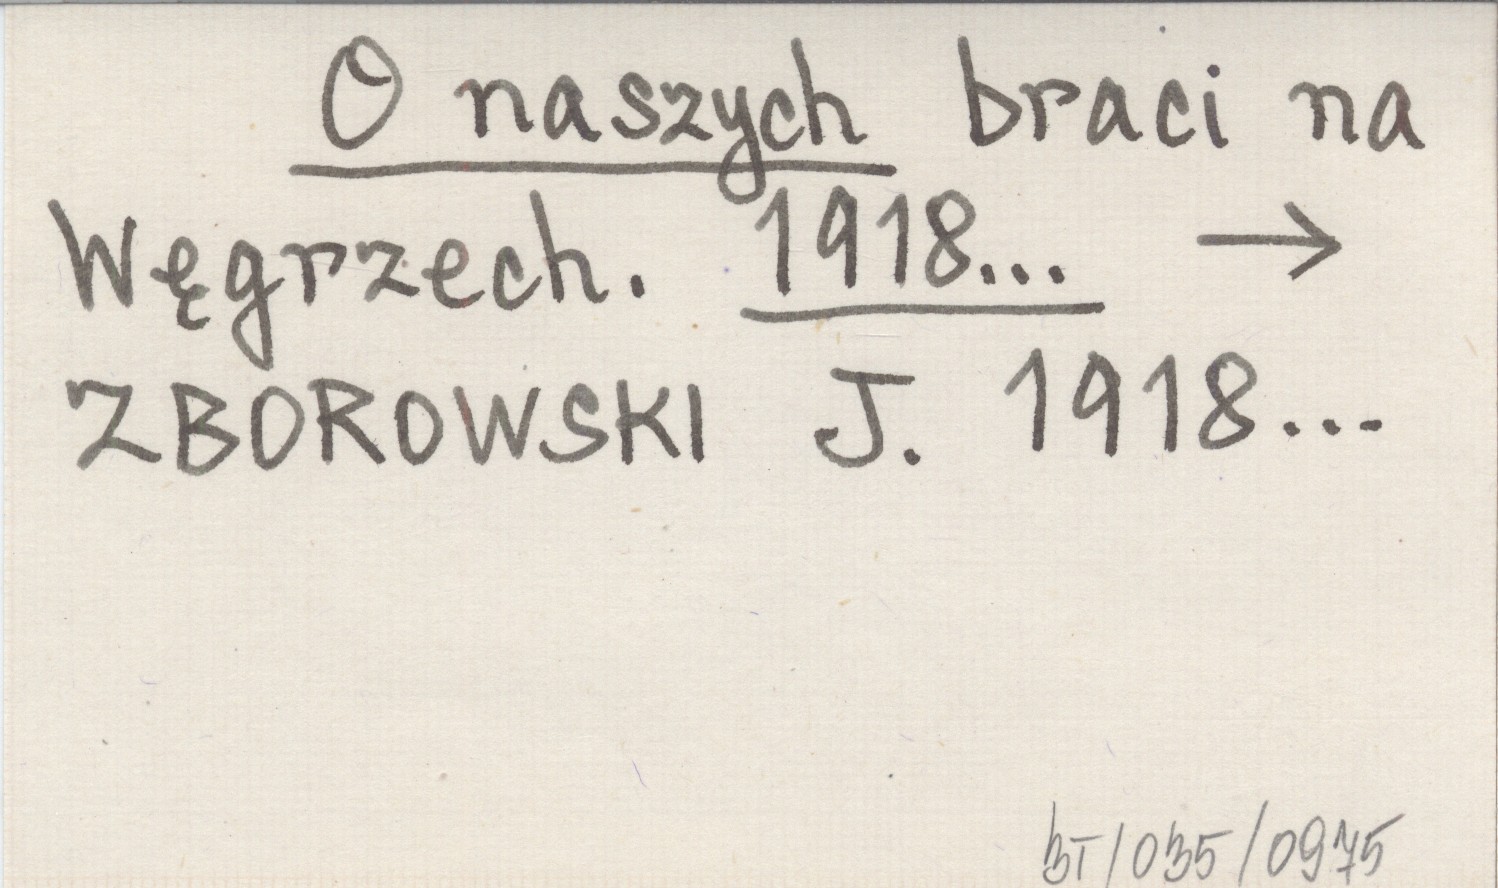 O naszych braci na
Węgrzech. 1918... →
ZBOROWSKI J. 1918...
BT/035/0975